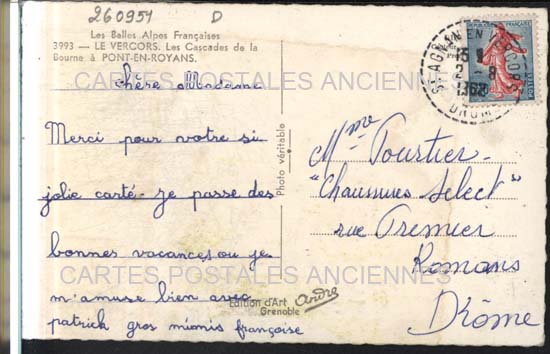 260951 D
Les Belles Alpes Françaises
3993 — LE VERCORS. Les Cascades de la
Bourne à PONT-EN-ROYANS.
chère Madame
Merci pour votre si
jolie carte. Je passe des
bonnes vacances ou je
m'amuse bien avec
patrick gros mimis françoise
Photo véritable
Edition d'Art
André
Grenoble
CARTES POSTALES ANCIENNES
CARTES POSTALES ANCIENNES
ST AGNAN EN VERCORS
15 H
2 - 8
DROME
REPUBLIQUE FRANÇAISE
Mme Pourtier
"Chaussures Select"
rue Premier
Romans
Drôme